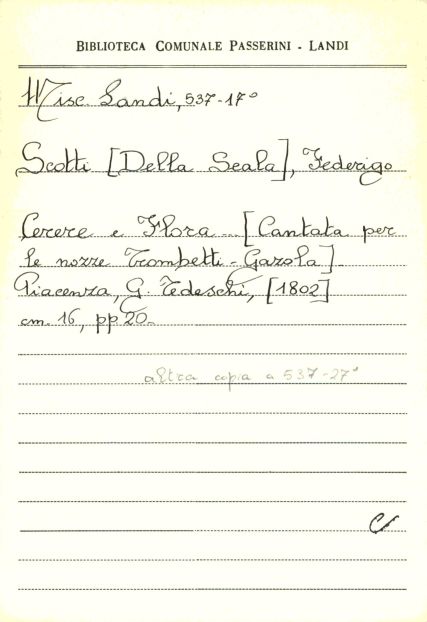 BIBLIOTECA COMUNALE PASSERINI - LANDI
Misc. Landi, 537-17°
Scotti [Della Scala], Federigo
Cerere e Flora... [Cantata per
le nozze Trombetti-Gazola].
Piacenza, G. Tedeschi, [1802]
cm. 16, pp 20.
altra copia a 537-27°